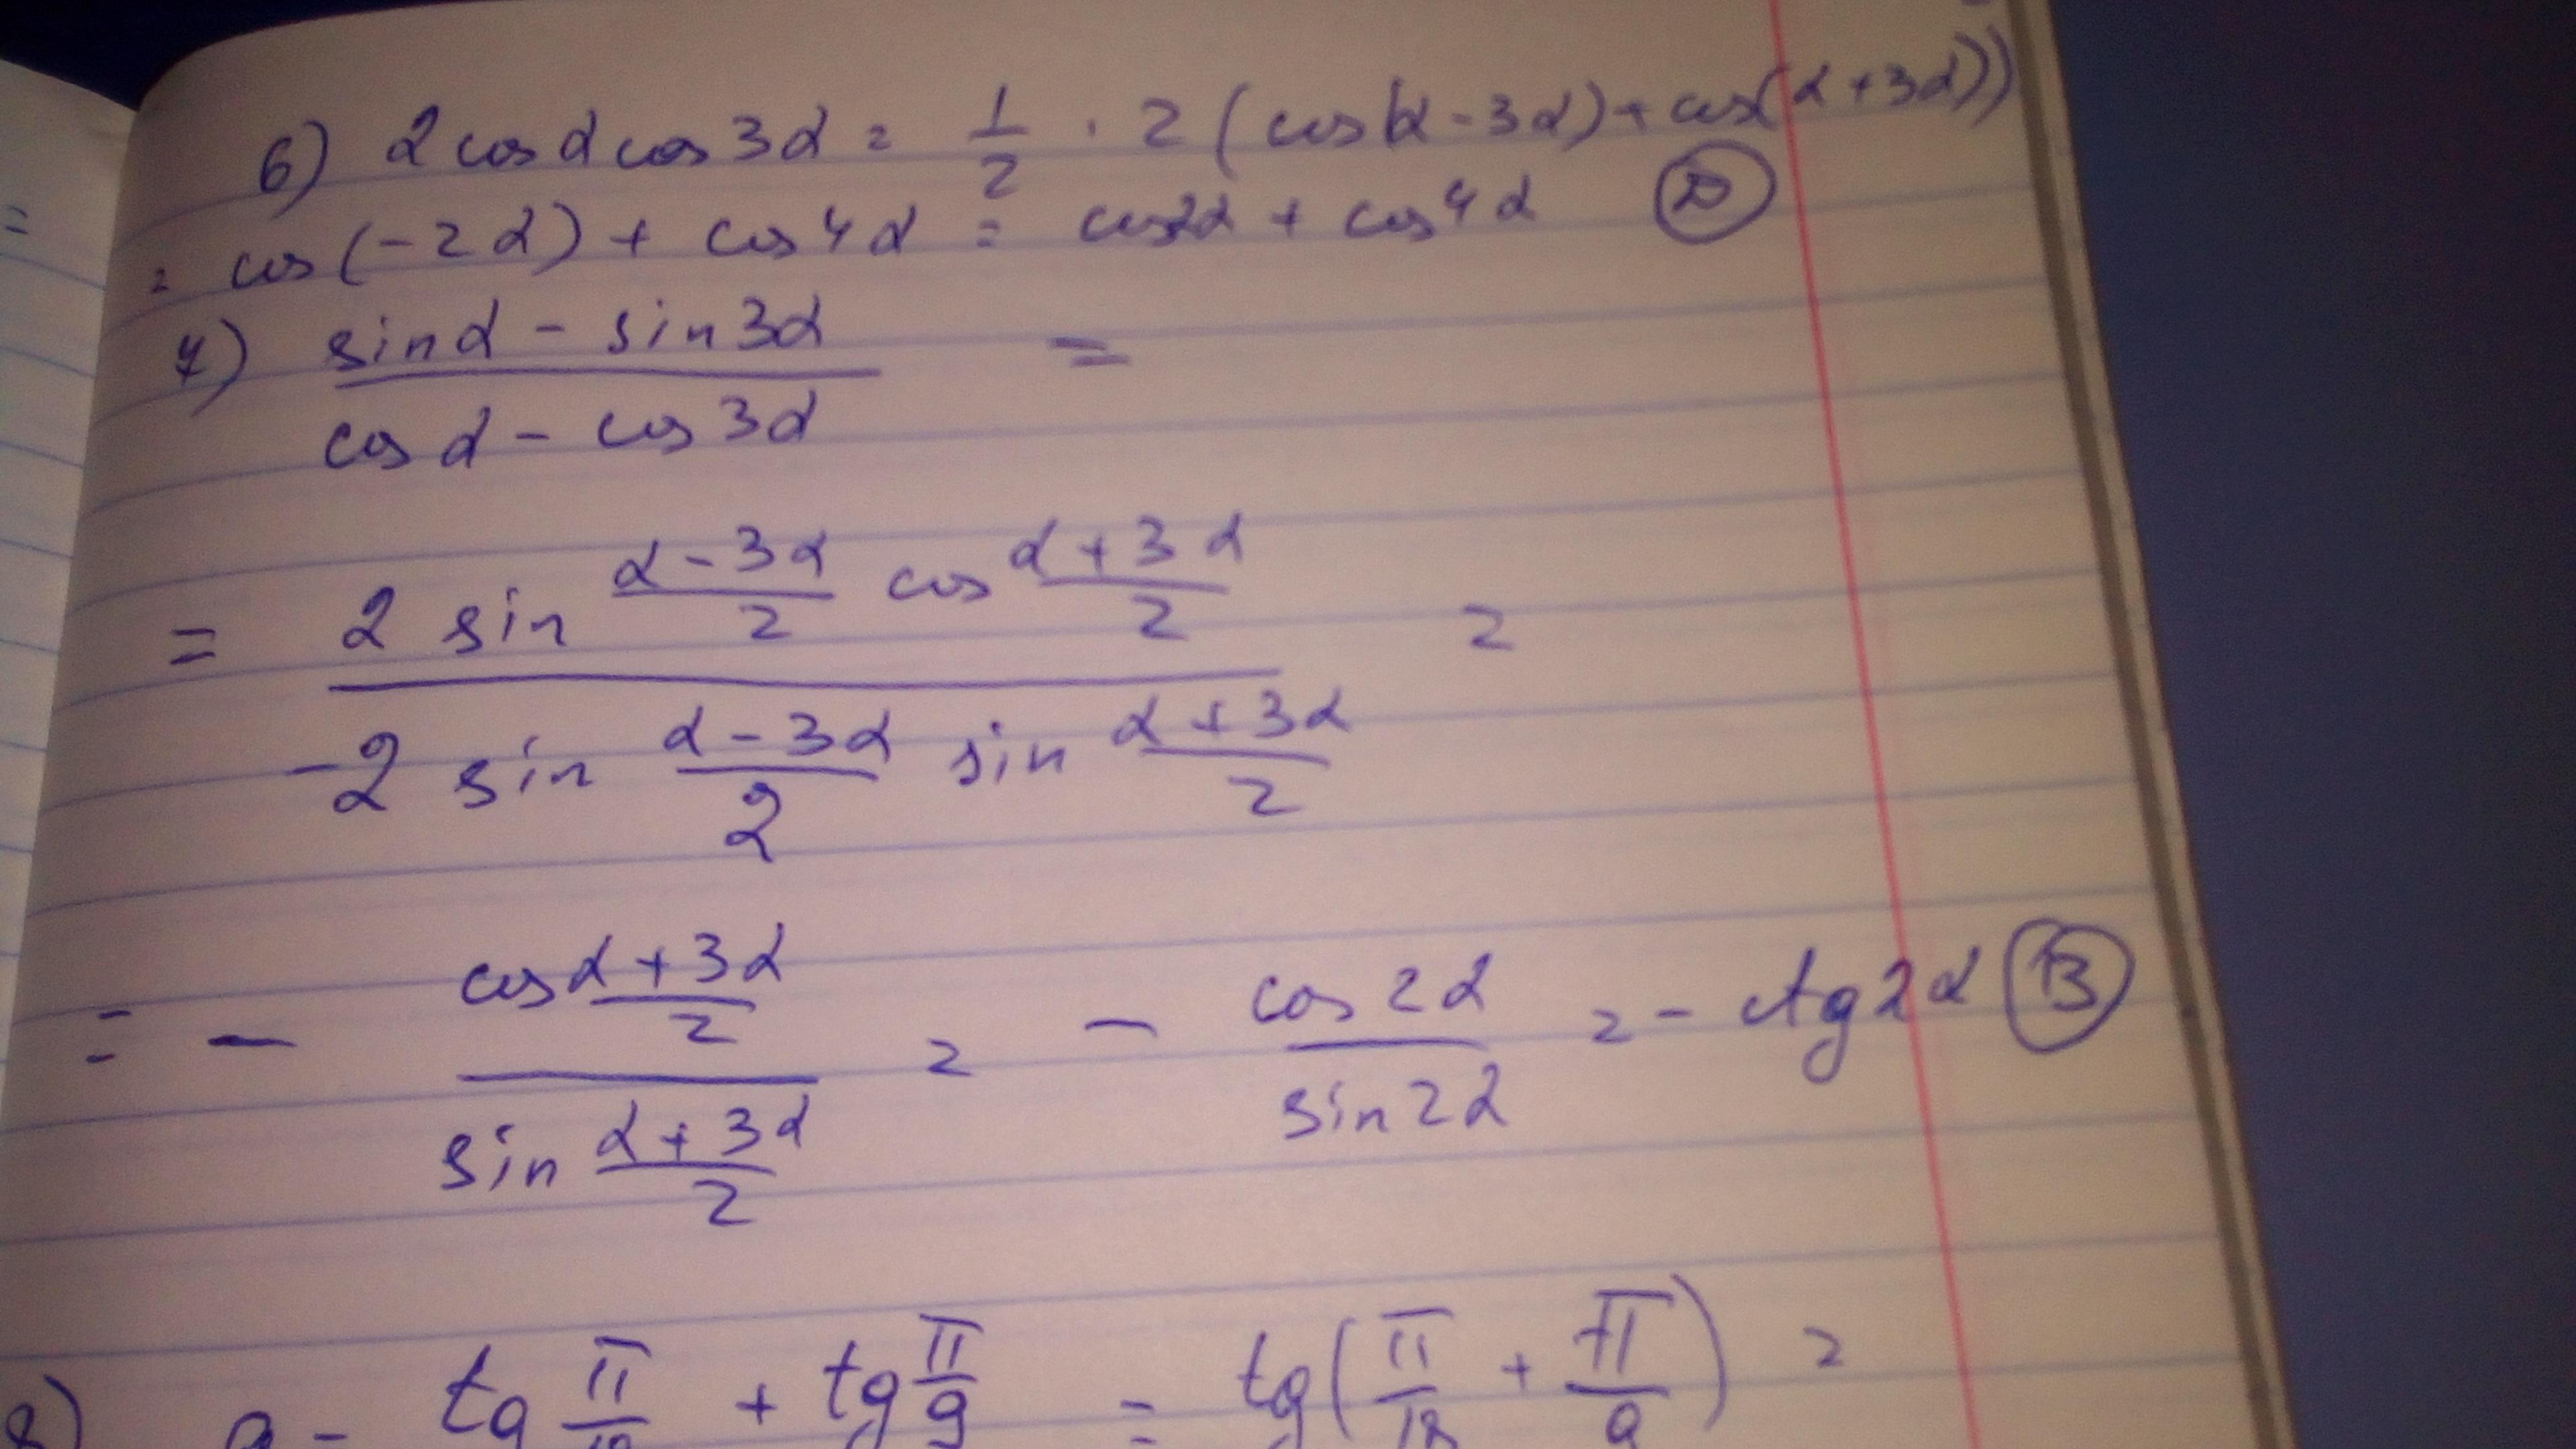 =
6) 2 cos α cos 3α = 1/2 · 2 (cos(α - 3α) + cos(α + 3α))
= cos(-2α) + cos 4α = cos 2α + cos 4α (D)
7) (sin α - sin 3α)/(cos α - cos 3α) =
= (2 sin (α - 3α)/2 cos (α + 3α)/2)/(-2 sin (α - 3α)/2 sin (α + 3α)/2) =
= - (cos (α + 3α)/2)/(sin (α + 3α)/2) = - (cos 2α)/(sin 2α) = - ctg 2α (B)
8) a = tg π/18 + tg π/9 = tg(π/18 + π/9) =